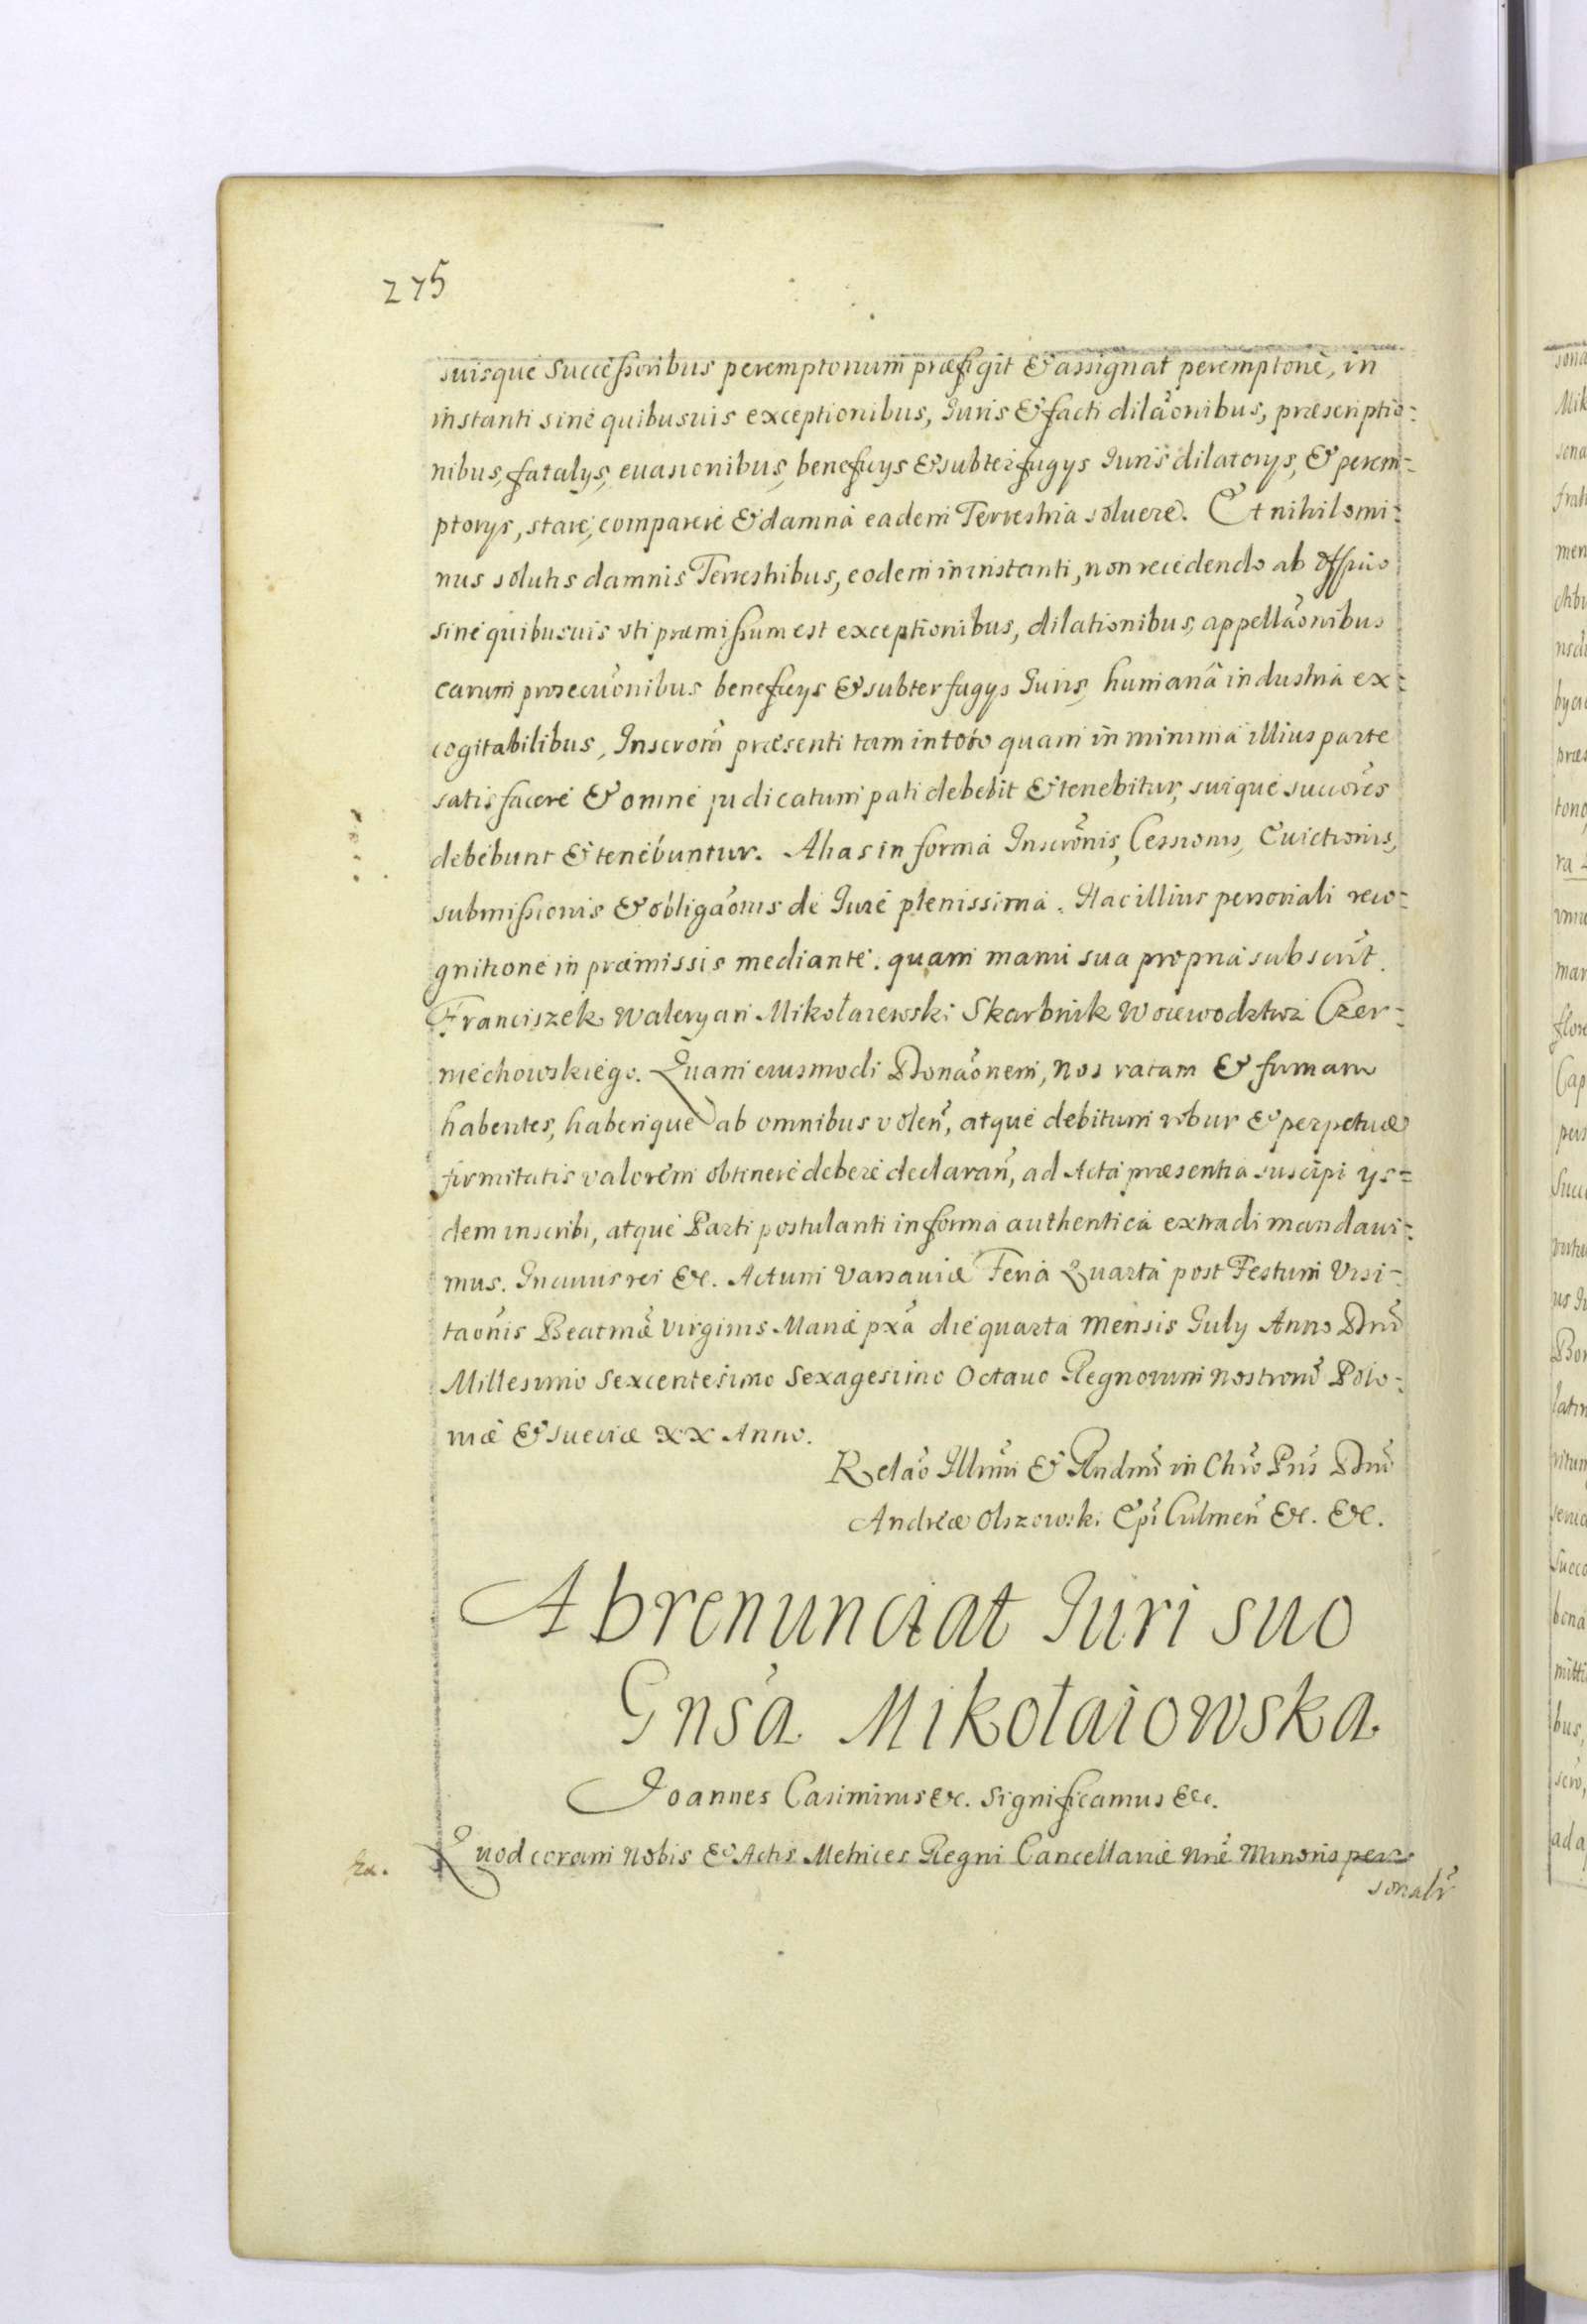 275
suisque Successoribus peremptorium præfigit & assignat peremptorie, in
instanti sine quibusuis exceptionibus, Iuris & facti dilãonibus, præscriptio=
nibus, fatalys, euasionibus, beneficys & subterfugys Iuris dilatorys, & perem=
ptorys, stare, comparere & damna eadem Terrestria soluere. Et nihilomi=
nus solutis damnis Terrestribus, eodem in instanti, non recedendo ab Officio
sine quibusuis vti præmissum est exceptionibus, dilationibus, appellãonibus
earum prosecuõnibus beneficys & subterfugys Iuris, humanâ industriâ ex=
cogitabilibus, Inscrõni præsenti tam in toto quam in minima illius parte
satisfacere & omne judicatum pati debebit & tenebitur, suique succõres
debebunt & tenebuntur. Alias in forma Inscrõnis, Cessionis, Euictionis,
submissionis & obligãonis de Iure plenissima. Hac illius personali reco=
gnitione in præmissis mediante. quam manu sua propria subscrit.
Franciszek Waleryan Mikołaiewski Skarbnik Woiewodztwa Czer=
niechowskiego. Quam eiusmodi Donãonem, nos ratam & firmam
habentes, haberique ab omnibus volen, atque debitum robur & perpetuæ
firmitatis valorem obtinere debere declaran, ad Acta præsentia suscipi ys=
dem inscribi, atque Parti postulanti in forma authentica extradi mandaui=
mus. In cuius rei &c. Actum Varsauiæ Feria Quarta post Festum Visi=
taõnis Beatmæ Virginis Mariæ pxã die quarta Mensis July Anno Dni
Millesimo Sexcentesimo Sexagesimo Octauo Regnorum Nostrorũ Polo=
niæ & sueciæ XX Anno.
Relaõ Illmi & Rndmi in Chrõ Pris Dni
Andreæ Olszowski Epi Culmen &c. &c.
Abrenunciat Iuri suo
Gnsa Mikołaiowska
Joannes Casimirus &c. Significamus &c.
Quod coram Nobis & Actis Metrices Regni Cancellariæ Nræ Minoris per=
sonalr